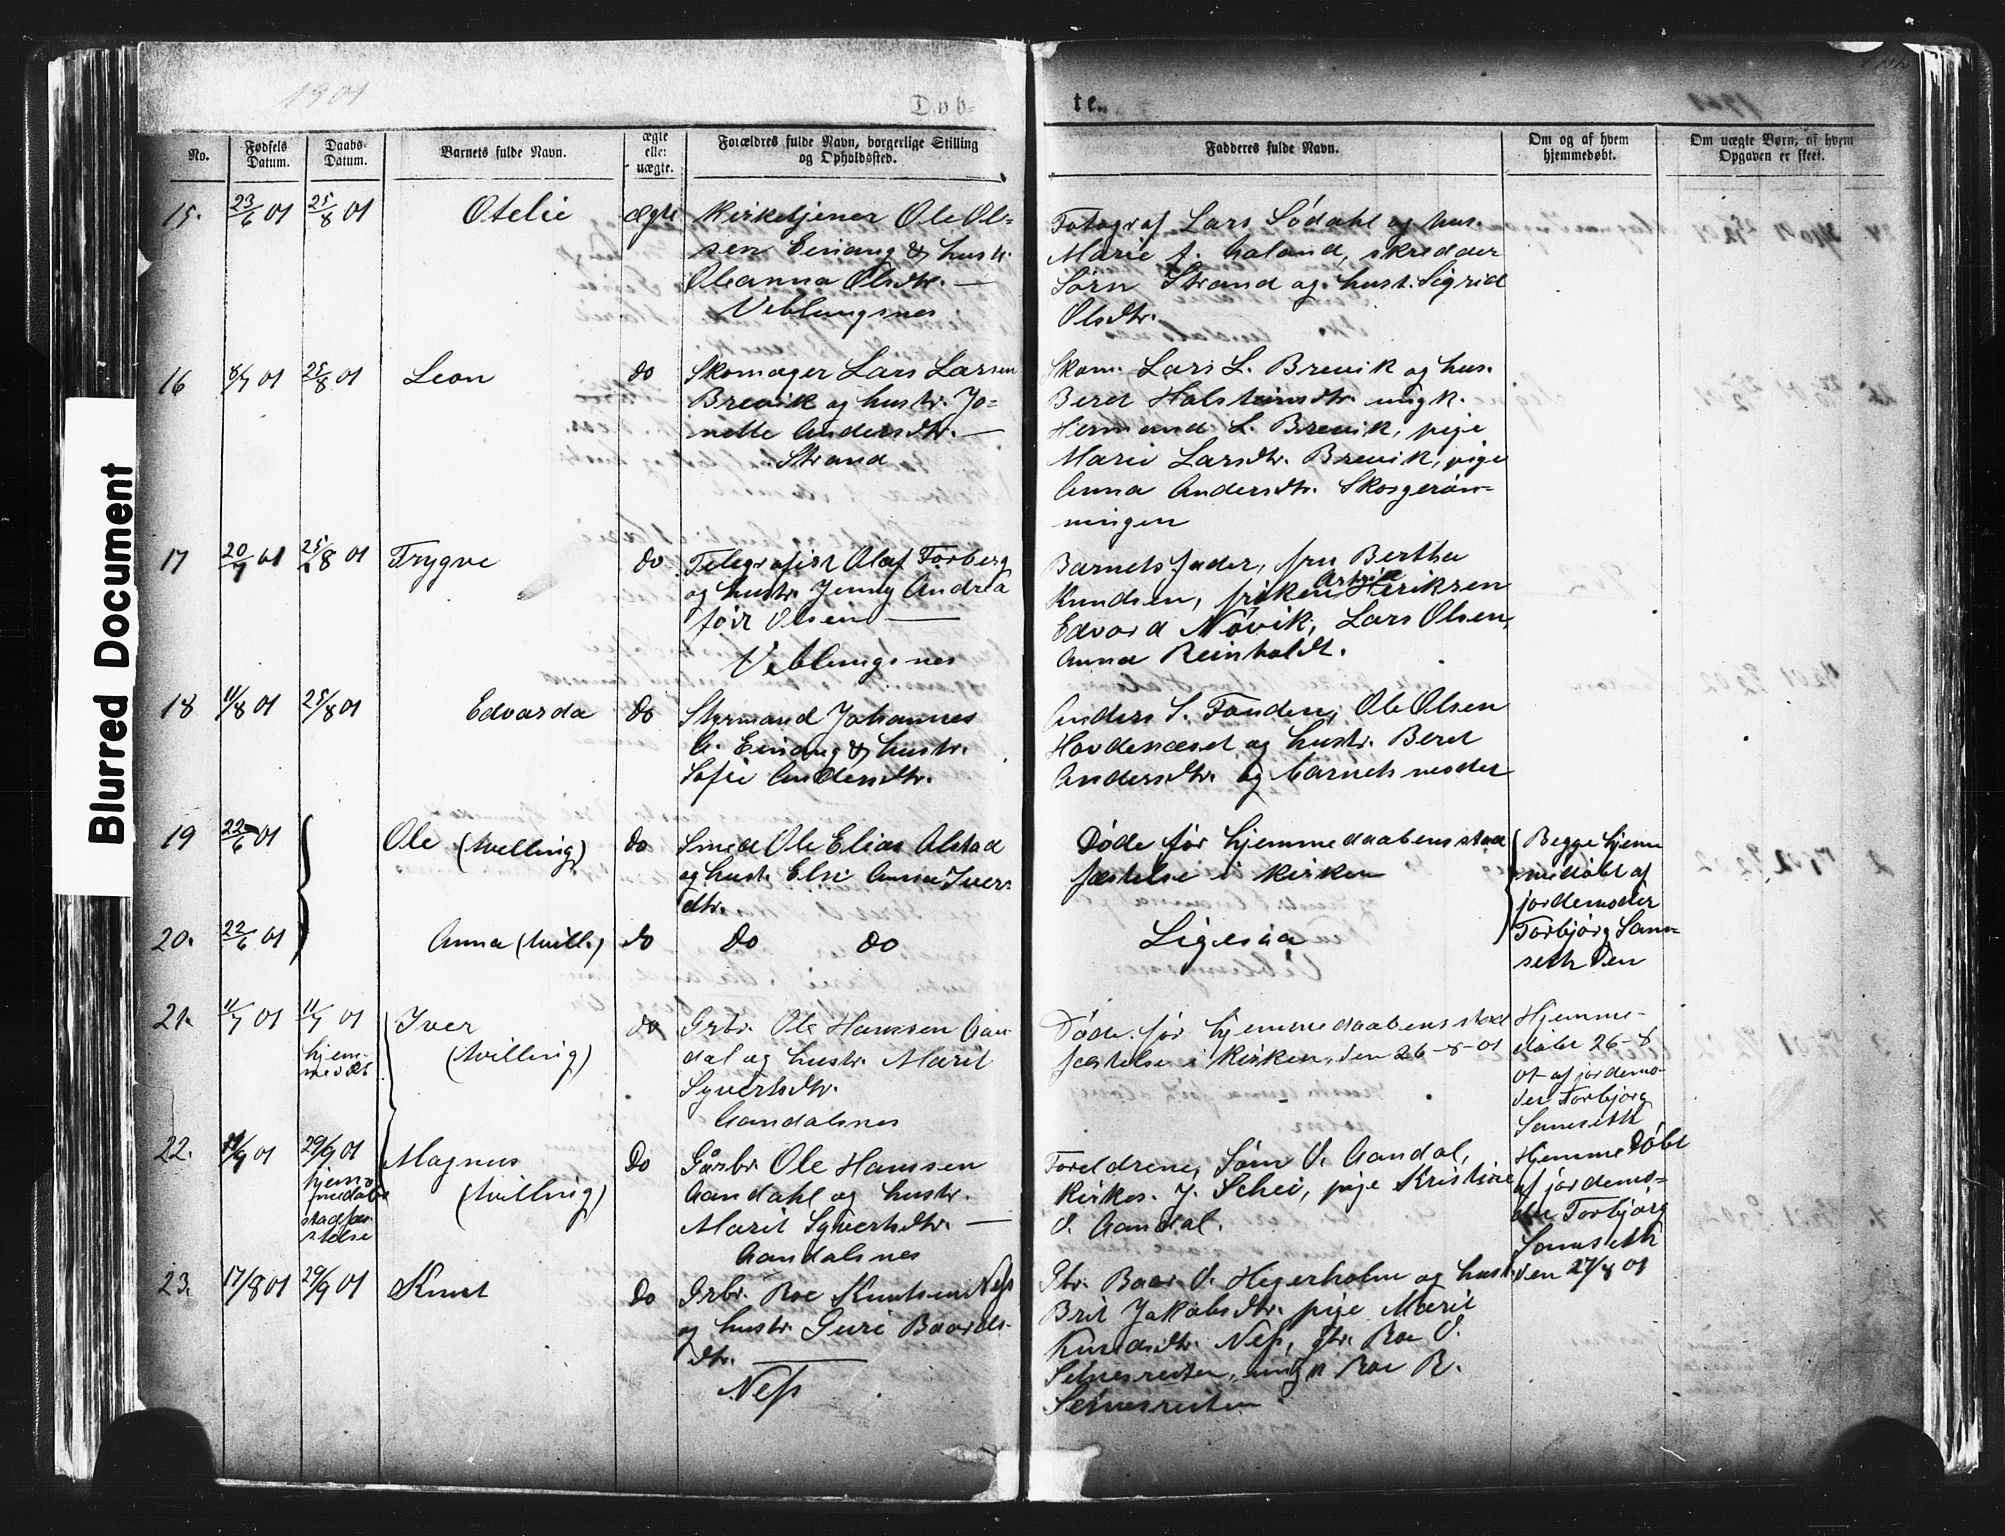 Blurred Document
1901
Døb-
te.
1901
No.
Fødsels Datum.
Daabs-Datum.
Barnets fulde Navn.
ægte eller uægte.
Forældres fulde Navn, borgerlige Stilling
og Opholdssted.
Fadderes fulde Navn.
Om og af hvem
hjemmedøbt.
Om uægte Børn, af hvem
Opgaven er skeet.
15. 23/6 01 25/8 01 Otelie ægte Kirketjener Ole Ol=
sen Einang & hustr.
Oleanna Olsdtr. —
Veblungsnes
Fotograf Lars Sødahl og hus.
Marie f. Haland, skredder
Sørn Strand og hust. Sigrid
Olsdtr.
16 8/7 01 25/8 01 Leon do Skomager Lars Larsen
Brevik og hustr. Jo=
nette Andersdtr. —
Strand
Skom. Lars L. Brevik og hus.
Beret Halsteinsdtr. ungk.
Hermand L. Brevik, pige
Marie Larsdtr. Brevik, pige
Anna Andersdtr. Skogerøn-
ningen
17 20/7 01 25/8 01 Trygve do Telegrafist Olaf Forberg
og hustr. Jenny Andrea
født Olsen —
Veblungsnes
Barnets fader, fru Bertha
Knudsen, frøken Henriksen
Edvard Nøvik, Lars Olsen,
Anna Reinholdt.
18 11/8 01 25/8 01 Edvarda do Styrmand Johannes
A. Einang & hustr.
Sofie Andersdtr.
Anders S. Fonden, Ole Olsen
Hovdenæset og hustr. Beret
Andersdtr. og barnets moder
19 22/6 01 Ole (tvilling) do Smed Ole Elias Alstad
og hust. Else Anna Ivers
dtr.
Døde før hjemmedaabens stad
fæstelse i kirken
Begge hjem
medøbt af
jordemoder
Torbjørg Sam-
seth den
20. 22/6 01 Anna (tvill.) do do do
Ligesaa
21. 11/7 01 11/7 01 Iver do Grbr. Ole Hanssen Aan
hjem-
medøbt
(tvilling)
dal og hustr. Marit
Syvertsdtr.
Aandalsnes
Døde før hjemmedaabens stad
fæstelse i kirken, den 26-8-01
Hjemme-
døbt 26-8
01 af jordemo-
der Torbjørg
Samseth
22. 29/9 01 Magnus do Gårbr. Ole Hanssen
hjem
medøbt
stadfæ-
stelse
(tvilling)
Aandahl og hustr.
Marit Syvertsdtr. —
Aandalsnes
Foreldrene, Sørn O. Aandal,
Kirkes. J. Schei, pige Kristine
O. Aandal.
Hjemmedøbt
af jordemo-
der Torbjørg
Samseth
den 27/8 01
23. 17/8 01 29/9 01 Knut do Grbr. Roe Knutsen Nesš
og hustr. Guri Baards-
dtr. —
Ness
Gbr. Baar O. Hegerholm og hust.
Brit Jakobsdtr. pige Marit
Knudsdtr. Ness, Gbr. Roe O.
Setnesreiten, ungk Roe R.
Setnesreiten